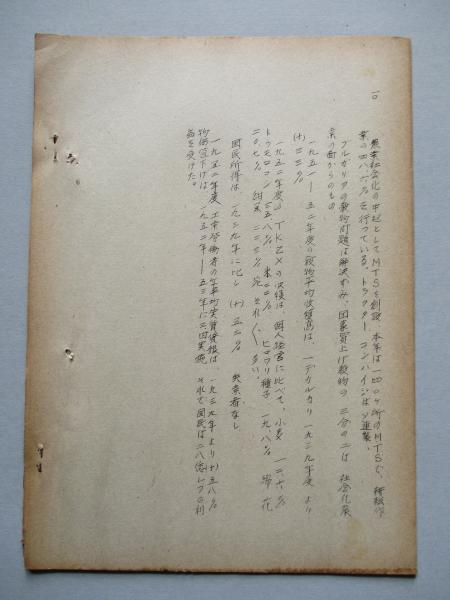 一〇
農業社会化の中起としてMTSを創設、本年は一四〇ヶ所のMTSで、耕作作
業の四八%を行っている。トラクター、コンバインはソ連製、
ブルガリアの穀物問題は解決ずみ、国家買上げ穀物の 三分の二は 社会化農
業の面からのもの
一九五一―五二年度の穀物平均収穫高は、一デカルカリ一九三九年度 より
(+)二三%
一九五二年度のTKZXの収穫は、個人経営に比べて、小麦 一三・六%
トウモロコシ 三五・八% 米 二二% ヒマワリ種子 一九・八% 綿花
二〇・七% 甜菜 二三・三% 夫々 それ〲多い。
国民所得は、一九三九年に比し (+)五三% 失業者なし
一九五二年度 工業労働者の年平均実質賃銀は、一九三九年より(+)五八%
物価値下げは、一九五二年―五三年に二回実施 それで国民は二八億レフの利
益を受けた。